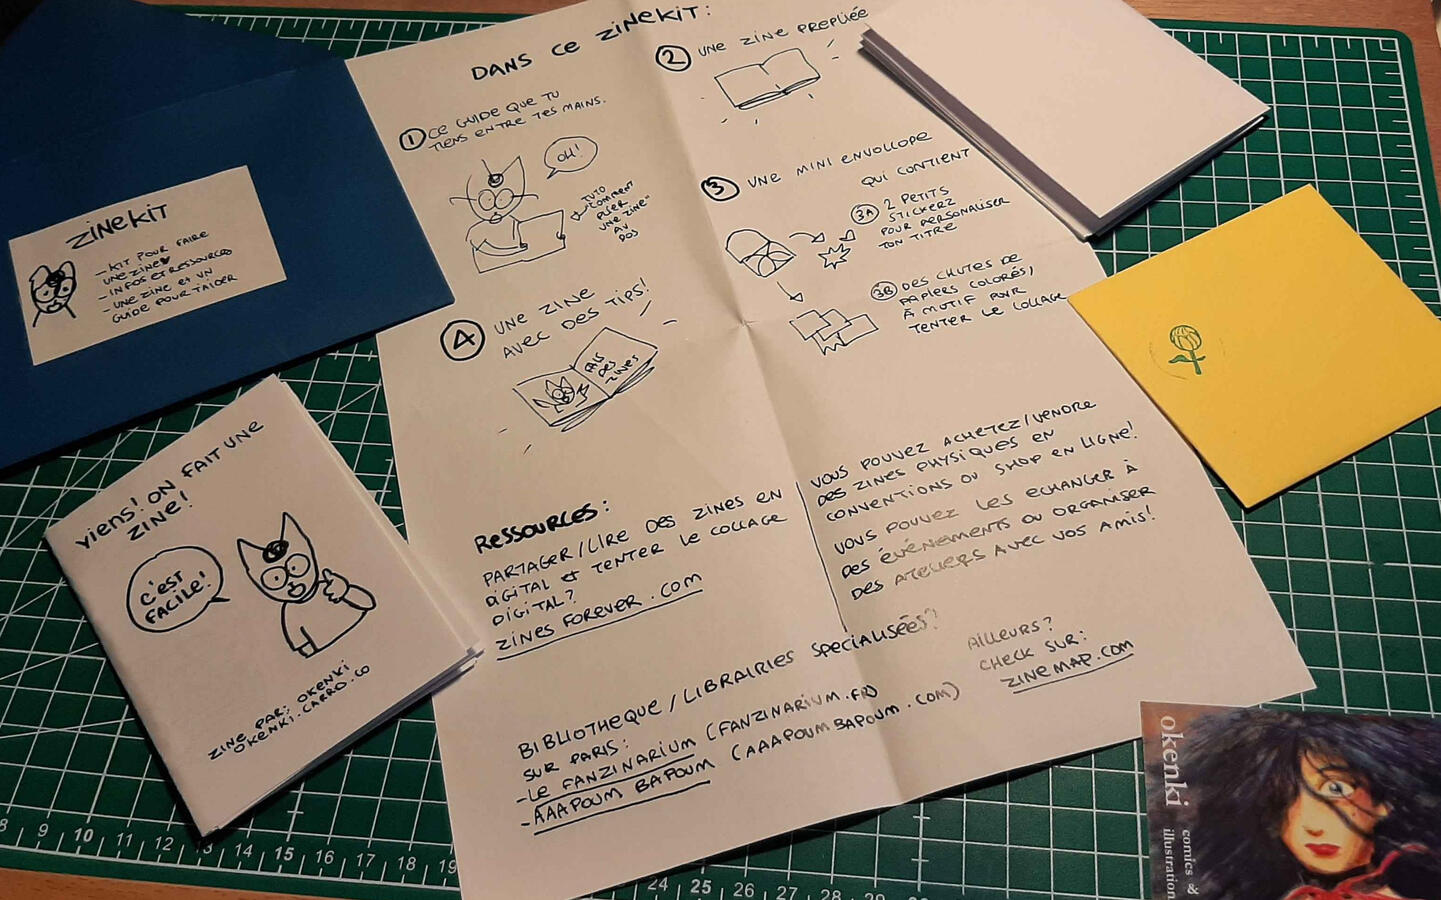 DANS CE ZINEKIT:
① CE GUIDE QUE TU
TIENS ENTRE TES MAINS.
OH!
TUTO
"COMMENT
PLIER
UNE ZINE"
AU
DOS
② UNE ZINE PREPLIÉE
③ UNE MINI ENVOLLOPE
QUI CONTIENT
3A 2 PETITS
STICKERZ
POUR PERSONALISER
TON TITRE
3B DES CHUTES DE
PAPIERS COLORÉS,
À MOTIF POUR
TENTER LE COLLAGE
④ UNE ZINE
AVEC DES TIPS!
FAIS
DES
ZINES
RESSOURCES:
PARTAGER/LIRE DES ZINES EN
DIGITAL et TENTER LE COLLAGE
DIGITAL?
ZINES FOREVER.COM
VOUS POUVEZ ACHETEZ/VENDRE
DES ZINES PHYSIQUES EN
CONVENTIONS OU SHOP EN LIGNE!
VOUS POUVEZ LES ECHANGER À
DES ÉVÉNEMENTS OU ORGANISER
DES ATELIERS AVEC VOS AMIS!
BIBLIOTHEQUE/LIBRAIRIES SPECIALISÉES?
SUR PARIS:
-LE FANZINARIUM (FANZINARIUM.FR)
-AAAPOUM BAPOUM (AAAPOUMBAPOUM.COM)
AILLEURS?
CHECK SUR:
ZINEMAP.COM
ZINEKIT
-KIT POUR FAIRE
UNE ZINE♥
-INFOS ET RESSOURCES
-UNE ZINE ET UN
GUIDE POUR T'AIDER
VIENS! ON FAIT UNE
ZINE!
C'EST
FACILE!
ZINE PAR: OKENKI
OKENKI.CARRD.CO
okenki
comics &
illustration
8 9 10 11 12 13 14 15 16 17 18 19
24 25 26 27 28 29